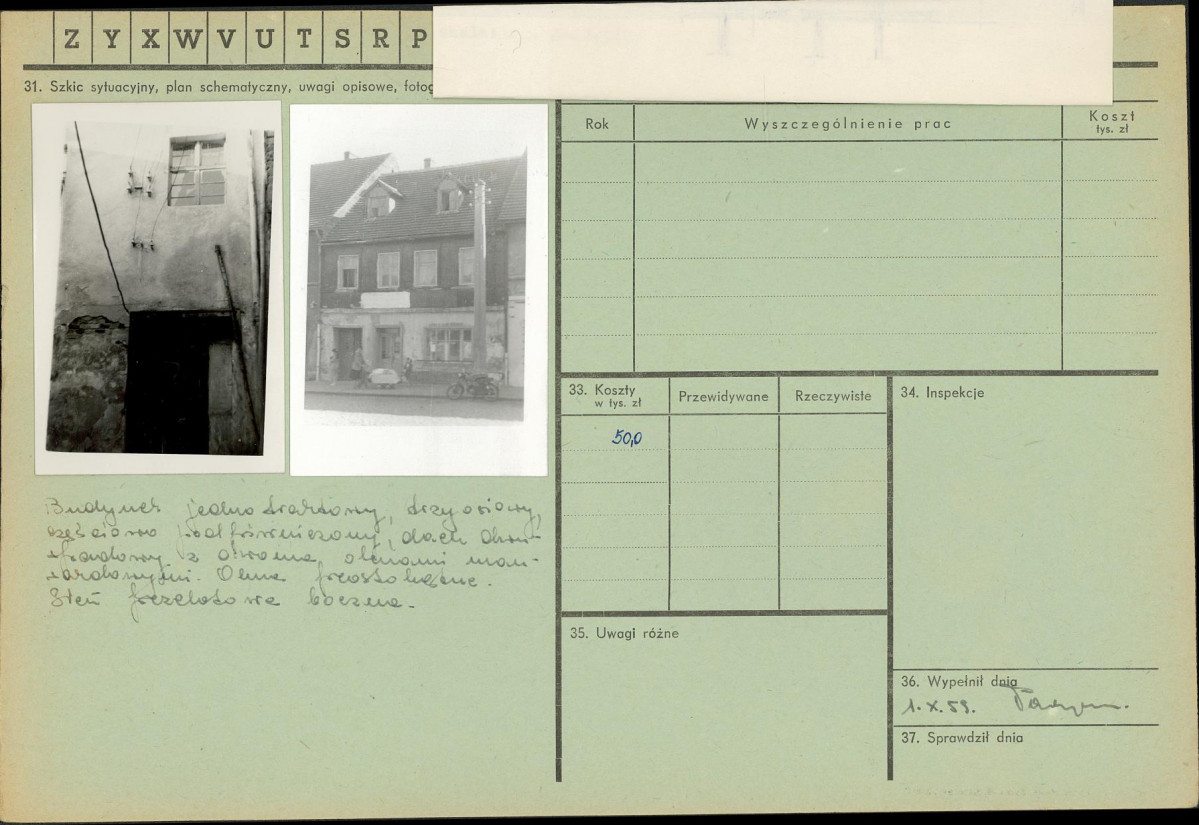 Z Y X W V U T S R P
31. Szkic sytuacyjny, plan schematyczny, uwagi opisowe, fotog
Rok
Wyszczególnienie prac
Koszt
tys. zł
33. Koszty
w tys. zł
Przewidywane
Rzeczywiste
50,0
34. Inspekcje
Budynek jednotraktowy, trzyosiowy,
częściowo podpiwniczony, dach dwu-
spadowy z dwoma oknami man-
sardowymi. Okna prostokątne.
Sień przelotowa boczna.
35. Uwagi różne
36. Wypełnił dnia
1.X.59.
37. Sprawdził dnia